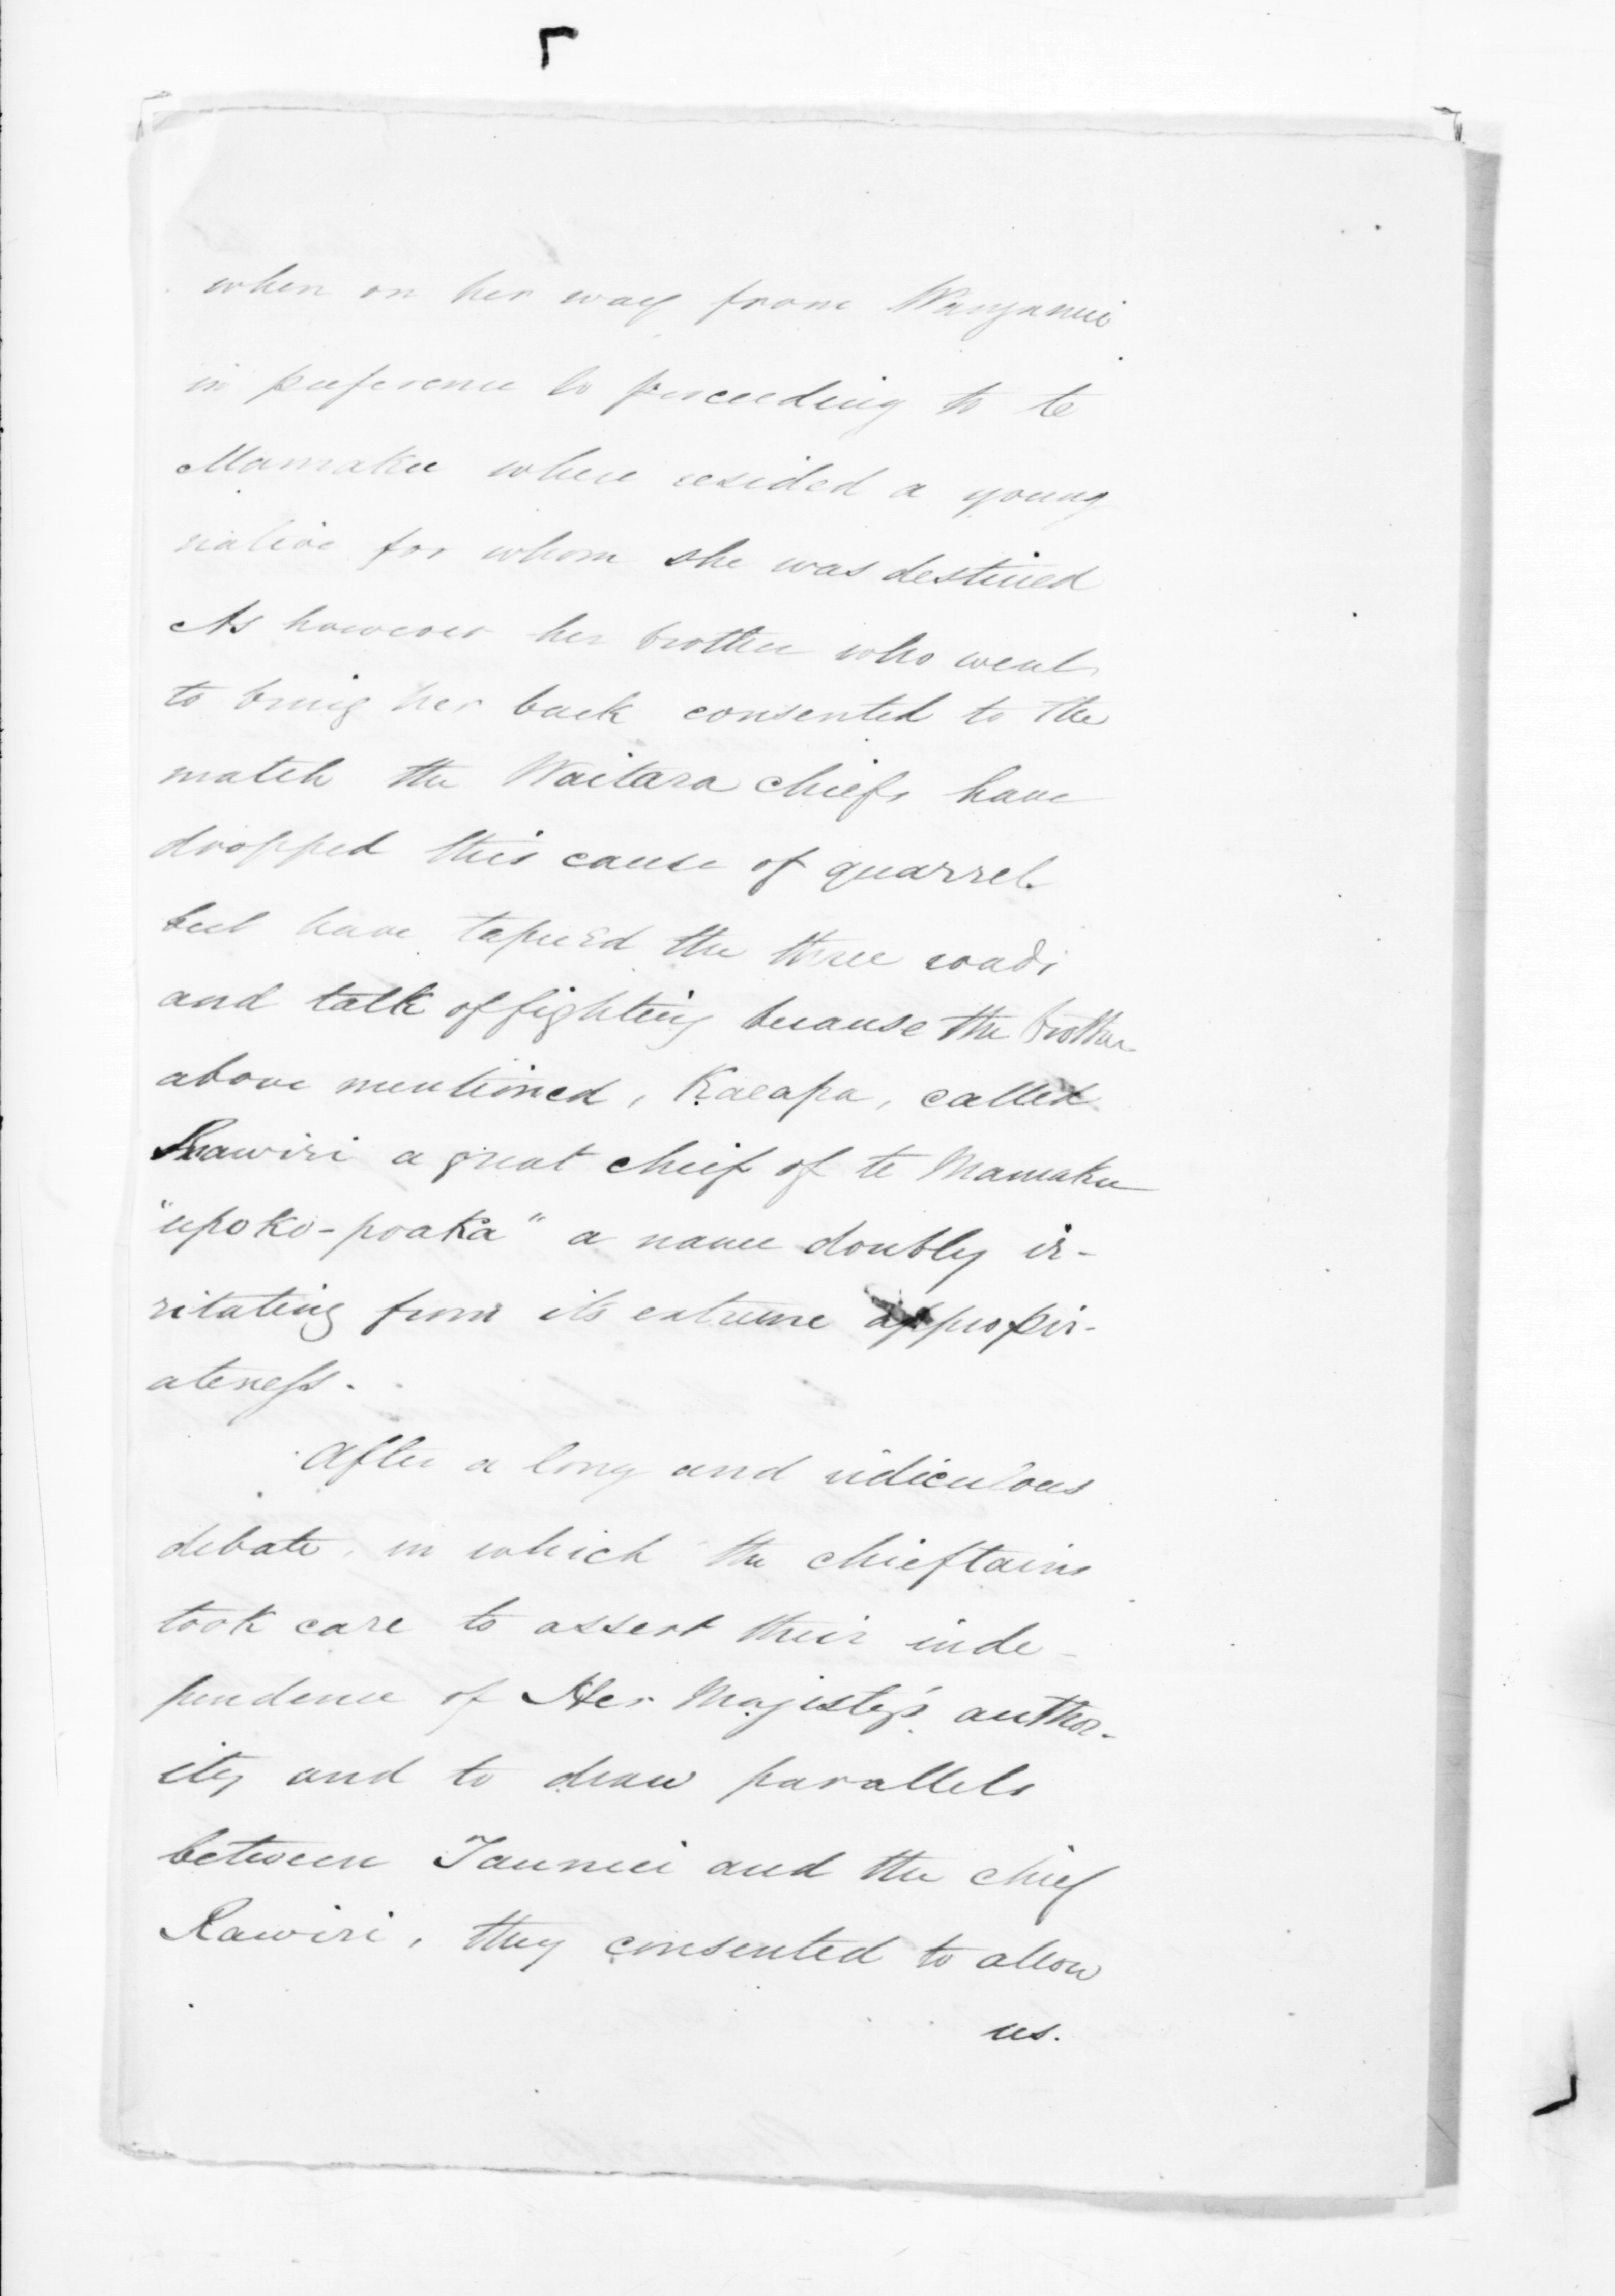 when on her way from Wanganui
in preference to proceeding to te
Mamaku where resided a young
native for whom she was destined
As however her brother who went
to bring her back consented to the
match the Waitara chiefs have
dropped this cause of quarrel
but have tapued the three roads
and talk of fighting because the brother
above mentioned, Karapa, called
Rawiri a great chief of te Mamaku
"upoko-poaka" a name doubly ir-
ritating from its extreme appropri-
ateness.
After a long and ridiculous
debate, in which the chieftains
took care to assert their inde-
pendence of Her Majesty's author-
ity and to draw parallels
between Taunui and the chief
Rawiri, they consented to allow
us.